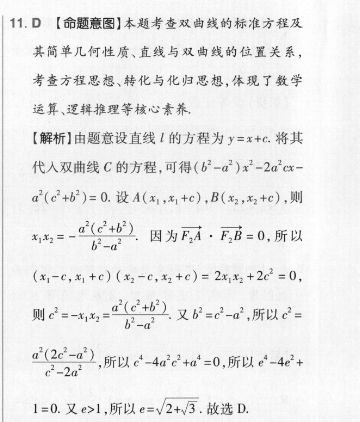 11. D 【命题意图】本题考查双曲线的标准方程及
其简单几何性质、直线与双曲线的位置关系,
考查方程思想、转化与化归思想,体现了数学
运算、逻辑推理等核心素养.
【解析】由题意设直线 l 的方程为 y=x+c. 将其
代入双曲线 C 的方程,可得(b²-a²)x²-2a²cx-
a²(c²+b²)=0. 设 A(x₁,x₁+c),B(x₂,x₂+c),则
x₁x₂=-\frac{a²(c²+b²)}{b²-a²}. 因为\overrightarrow{F₂A}·\overrightarrow{F₂B}=0,所以
(x₁-c,x₁+c)(x₂-c,x₂+c)=2x₁x₂+2c²=0,
则 c²=-x₁x₂=\frac{a²(c²+b²)}{b²-a²}. 又 b²=c²-a²,所以 c²=
\frac{a²(2c²-a²)}{c²-2a²},所以 c⁴-4a²c²+a⁴=0,所以 e⁴-4e²+
1=0. 又 e>1,所以 e=\sqrt{2+\sqrt{3}}. 故选 D.